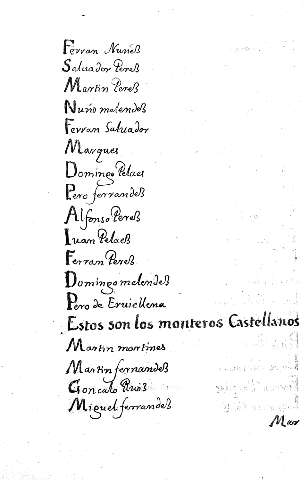 Ferran Nuñeß
Saluador Pereß
Martin Pereß
Nuño melendeß
Ferran Saluador
Marques
Domingo Pelaes
Pero ferrandeß
Alfonso Pereß
Iuan Pelaeß
Ferran Pereß
Domingo melendeß
Pero de Eruiellena
Estos son los monteros Castellanos
Martin martines
Martin fernandeß
Goncalo Ruiß
Miguel ferrandeß
Mar